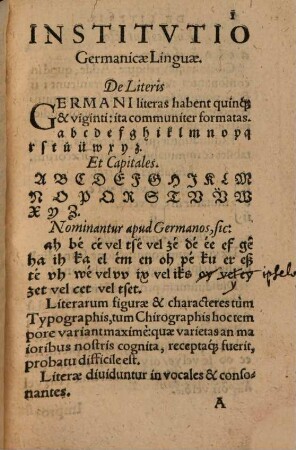 1
INSTITVTIO
Germanicæ Linguæ.
De Literis
GERMANI literas habent quinq;
& viginti: ita communiter formatas.
a b c d e f g h i k l m n o p q
r s t ú ü w x y z.
Et Capitales.
A B C D E F G H I K L M
N O P Q R S T V W
X Y Z.
Nominantur apud Germanos, sic:
ah bé cé vel tsé vel zé dé ée ef gê
ha ih ka el ém en oh pé ku er eß
té vh wé vel vv iy vel iks ipsel
zet vel cet vel tset.
Literarum figuræ & characteres tùm
Typographis, tùm Chirographis hoc tem
pore variant maximè: quæ varietas an ma
ioribus nostris cognita, receptaq; fuerit,
probatu difficile est.
Literæ diuiduntur in vocales & conso-
nantes.
A